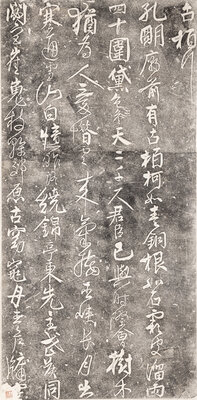 古柏行
孔明廟前有古柏柯如青銅根如石霜皮溜雨
四十圍黛色參天二千尺君臣已與時際會樹木
猶為人愛惜雲來氣接巫峽長月出
寒通雪山白憶昨路繞錦亭東先主武侯同
閟宮崔嵬枝幹郊原古窈窕丹青戶牖空